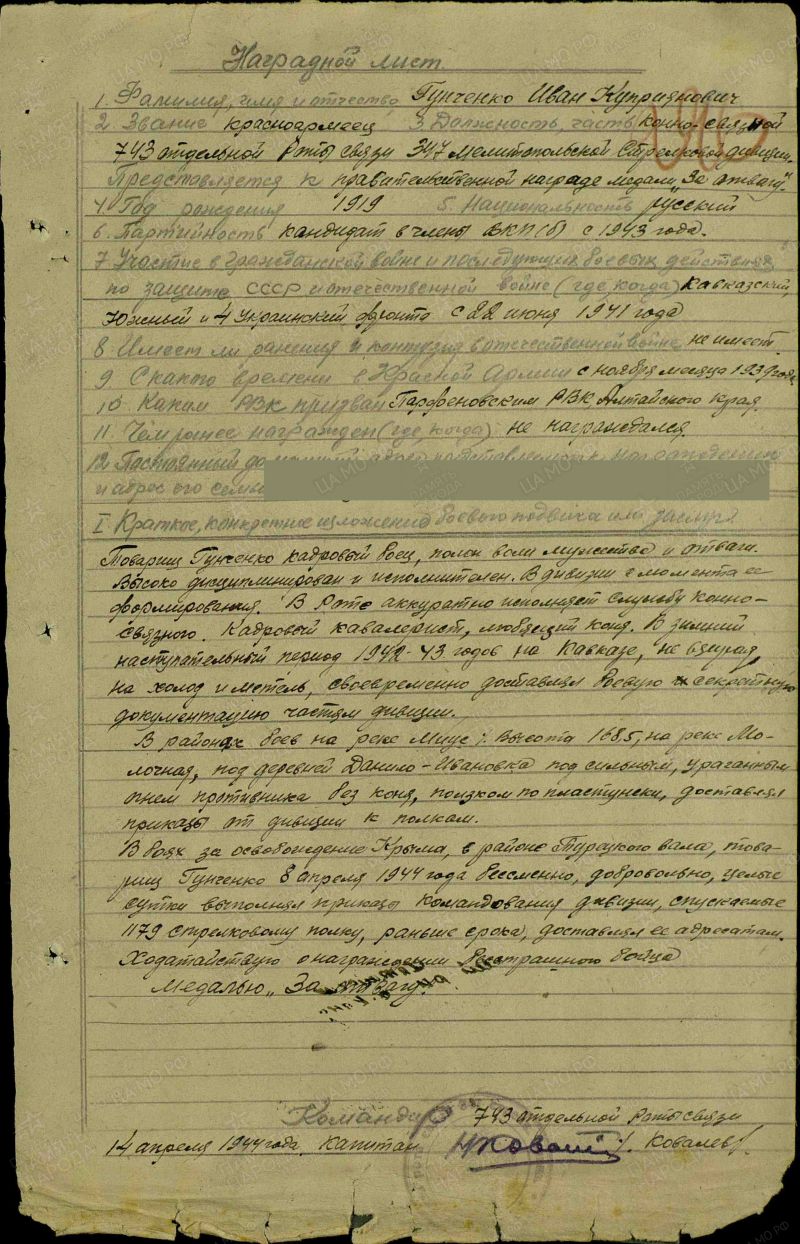 Наградной лист
1. Фамилия, имя и отчество Гунченко Иван Куприянович
2. Звание красноармеец 3. Должность, часть конно-связной
743 отдельной Роты связи 347 Мелитопольской Стрелковой дивизии.
Представляется к правительственной награде медали „За отвагу".
4. Год рождения 1919 5. Национальность русский
6. Партийность кандидат в члены ВКП(б) с 1943 года.
7. Участие в гражданской войне и последующих боевых действиях
по защите СССР и отечественной войне (где, когда) Кавказский,
Южный и 4 Украинский фронта с 22 июня 1941 года
8. Имеет ли ранения и контузия в отечественной войне не имеет.
9. С какого времени в Красной Армии с ноября месяца 1939 года
10. Каким РВК призван Парфеновским РВК Алтайского края.
11. Чем ранее награжден (где, когда) не награждался.
12. Постоянный домашний адрес представляемого к награждению
и адрес его семьи
I Краткое, конкретное изложение боевого подвига или заслуг
Товарищ Гунченко кадровый боец, полон воли мужества и отваги.
Высоко дисциплинирован и исполнителен. В дивизии с момента ее
формирования. В Роте аккуратно исполняет службу конно-
связного. Кадровый кавалерист, любящий коня. В зимний
наступательный период 1942-43 годов на Кавказе, не взирая,
на холод и метель, своевременно доставлял боевую и секретную
документацию частям дивизии.
В районах боев на реке Миус: Высота 168,5, на реке Мо-
лочная, под деревней Данило-Ивановка под сильным, ураганным
огнем противника без коня, ползком по пластунски, доставлял
приказы от дивизии к полкам.
В боях за освобождение Крыма, в районе Турецкого вала, това-
рищ Гунченко 8 апреля 1944 года бессменно, добровольно, целые
сутки выполнял приказы командования дивизии, спускаемые
1179 стрелковому полку, раньше срока, доставлял ее адресатам.
Ходатайствую о награждении бесстрашного бойца
Медалью „За отвагу".
Командир 743 отдельной Роты связи
14 апреля 1944 года. Капитан /Ковалев/.